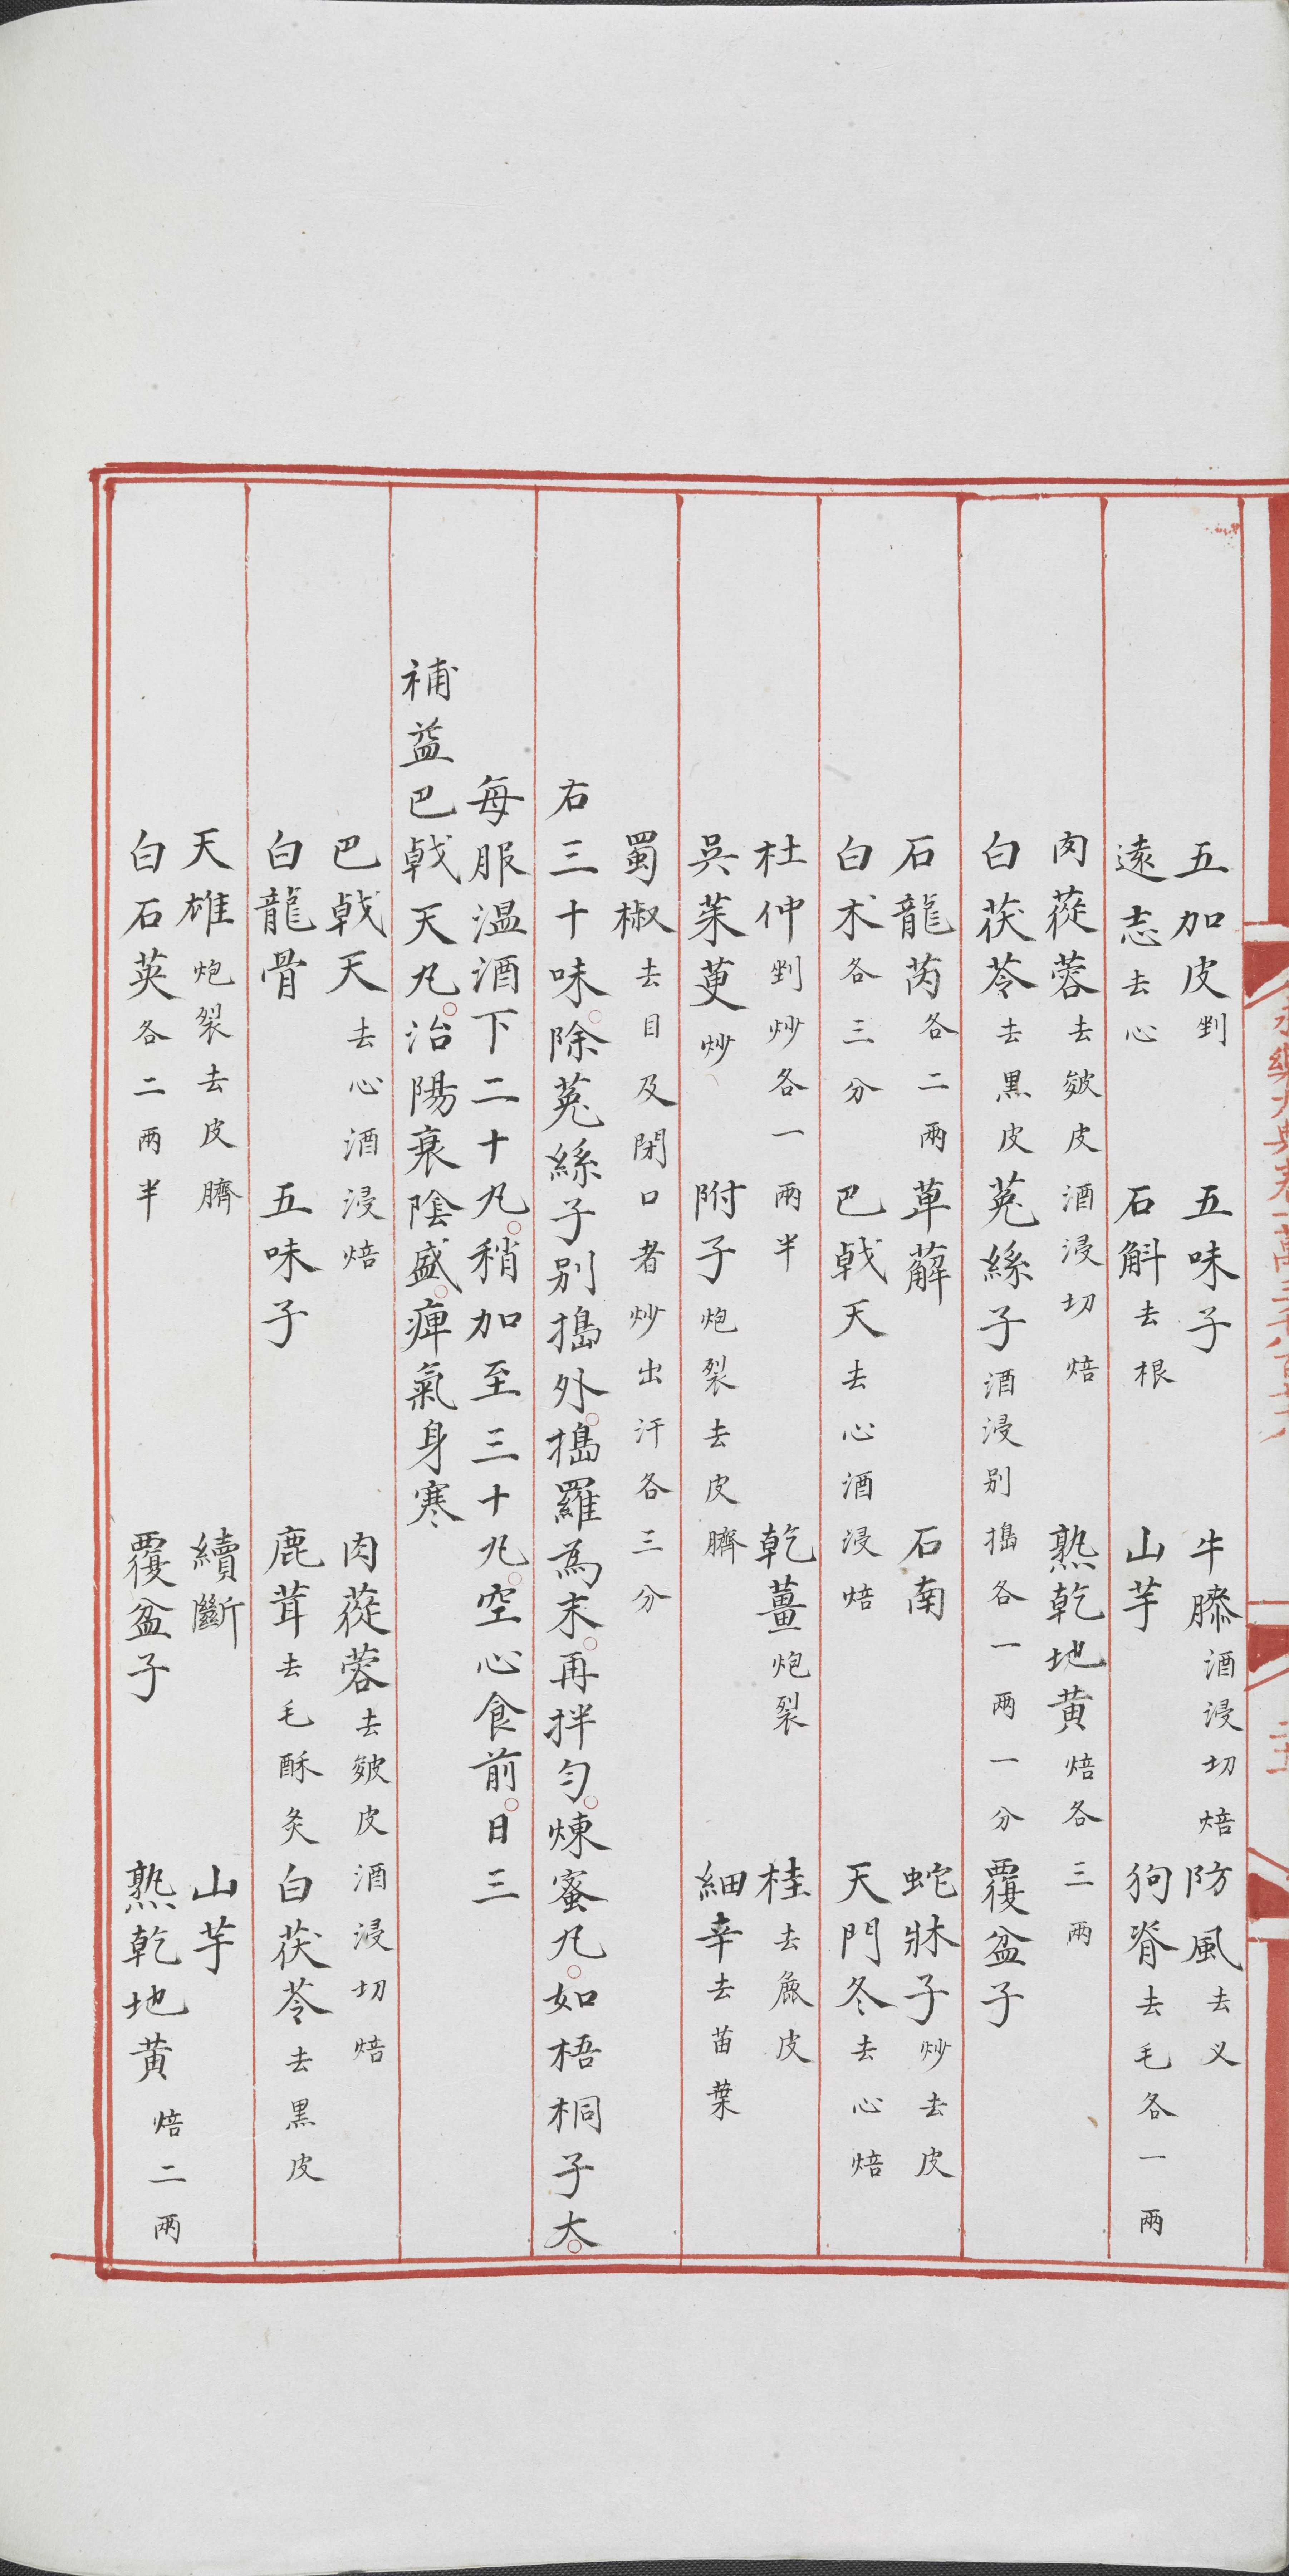 五加皮剉 五味子 牛膝酒浸切焙 防風去叉
遠志去心 石斛去根 山芋 狗脊去毛各一兩
肉蓯蓉去皴皮酒浸切焙 熟乾地黄焙各三兩
白茯苓去黑皮 菟絲子酒浸别搗各一兩一分 覆盆子
石龍芮各二兩 萆薢 石南 蛇牀子炒去皮
白朮各三分 巴戟天去心酒浸焙 天門冬去心焙
杜仲剉炒各一兩半 乾薑炮裂 桂去麄皮
吳茱萸炒 附子炮裂去皮臍 細辛去苗葉
蜀椒去目及閉口者炒出汗各三分
右三十味。除菟絲子别搗外。搗羅為末。再拌勻。煉蜜丸。如梧桐子大。
每服溫酒下二十丸。稍加至三十丸。空心食前。日三
補益巴戟天丸。治陽衰陰盛。痺氣身寒
巴戟天去心酒浸焙 肉蓯蓉去皴皮酒浸切焙
白龍骨 五味子 鹿茸去毛酥炙 白茯苓去黑皮
天雄炮裂去皮臍 續斷 山芋
白石英各二兩半 覆盆子 熟乾地黄焙二兩